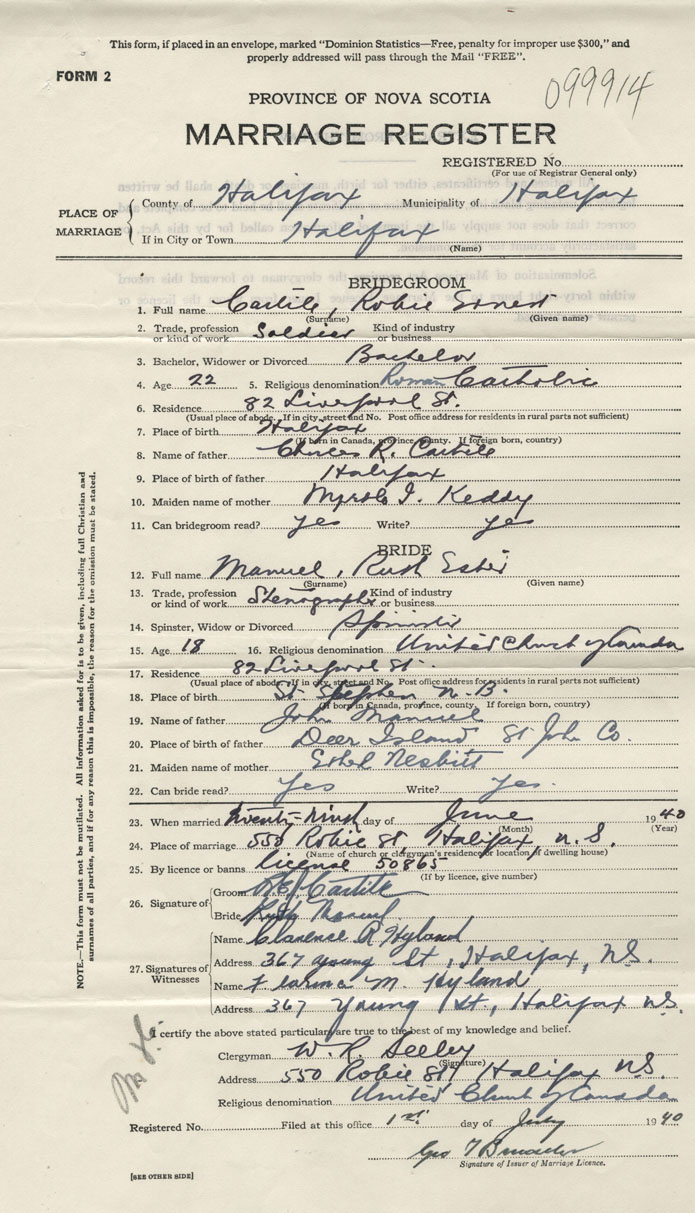 This form, if placed in an envelope, marked "Dominion Statistics—Free, penalty for improper use $300," and
properly addressed will pass through the Mail "FREE".
FORM 2
099914
PROVINCE OF NOVA SCOTIA
MARRIAGE REGISTER
REGISTERED No.
(For use of Registrar General only)
PLACE OF MARRIAGE
County of Halifax Municipality of Halifax
If in City or Town Halifax
(Name)
BRIDEGROOM
1. Full name Castile, Robie Ernest
(Surname) (Given name)
2. Trade, profession or kind of work Soldier Kind of industry or business
3. Bachelor, Widower or Divorced Bachelor
4. Age 22 5. Religious denomination Roman Catholic
6. Residence 82 Liverpool St.
(Usual place of abode. If in city, street and No. Post office address for residents in rural parts not sufficient)
7. Place of birth Halifax
(If born in Canada, province, county. If foreign born, country)
8. Name of father Charles R. Castile
9. Place of birth of father Halifax
10. Maiden name of mother I. Keddy
11. Can bridegroom read? yes Write? yes
BRIDE
12. Full name Manuel, Ruth Ester
(Surname) (Given name)
13. Trade, profession or kind of work Stenographer Kind of industry or business
14. Spinster, Widow or Divorced Spinster
15. Age 18 16. Religious denomination United Church of Canada
17. Residence 82 Liverpool St.
(Usual place of abode. If in city, street and No. Post office address for residents in rural parts not sufficient)
18. Place of birth St. Stephen N.B.
(If born in Canada, province, county. If foreign born, country)
19. Name of father John Manuel
20. Place of birth of father Deer Island St John Co.
21. Maiden name of mother Ethel Nesbitt
22. Can bride read? Yes Write? Yes.
23. When married Twenty-ninth day of June 1940
(Month) (Year)
24. Place of marriage 550 Robie St, Halifax, N.S.
(Name of church or clergyman's residence or location of dwelling house)
25. By licence or banns license 50865
(If by licence, give number)
26. Signature of
Groom R.E. Castile
Bride Ruth Manuel
27. Signatures of Witnesses
Name Clarence R Hyland
Address 367 Young St, Halifax, NS.
Name M. Hyland
Address 367 Young St., Halifax NS.
I certify the above stated particulars are true to the best of my knowledge and belief.
Clergyman W. R. Seeley
(Signature)
Address 550 Robie St Halifax NS.
Religious denomination United Church of Canada
Registered No. Filed at this office 1st day of July 1940
Geo
Signature of Issuer of Marriage Licence.
[SEE OTHER SIDE]
NOTE.—This form must not be mutilated. All information asked for is to be given, including full Christian and
surnames of all parties, and if for any reason this is impossible, the reason for the omission must be stated.